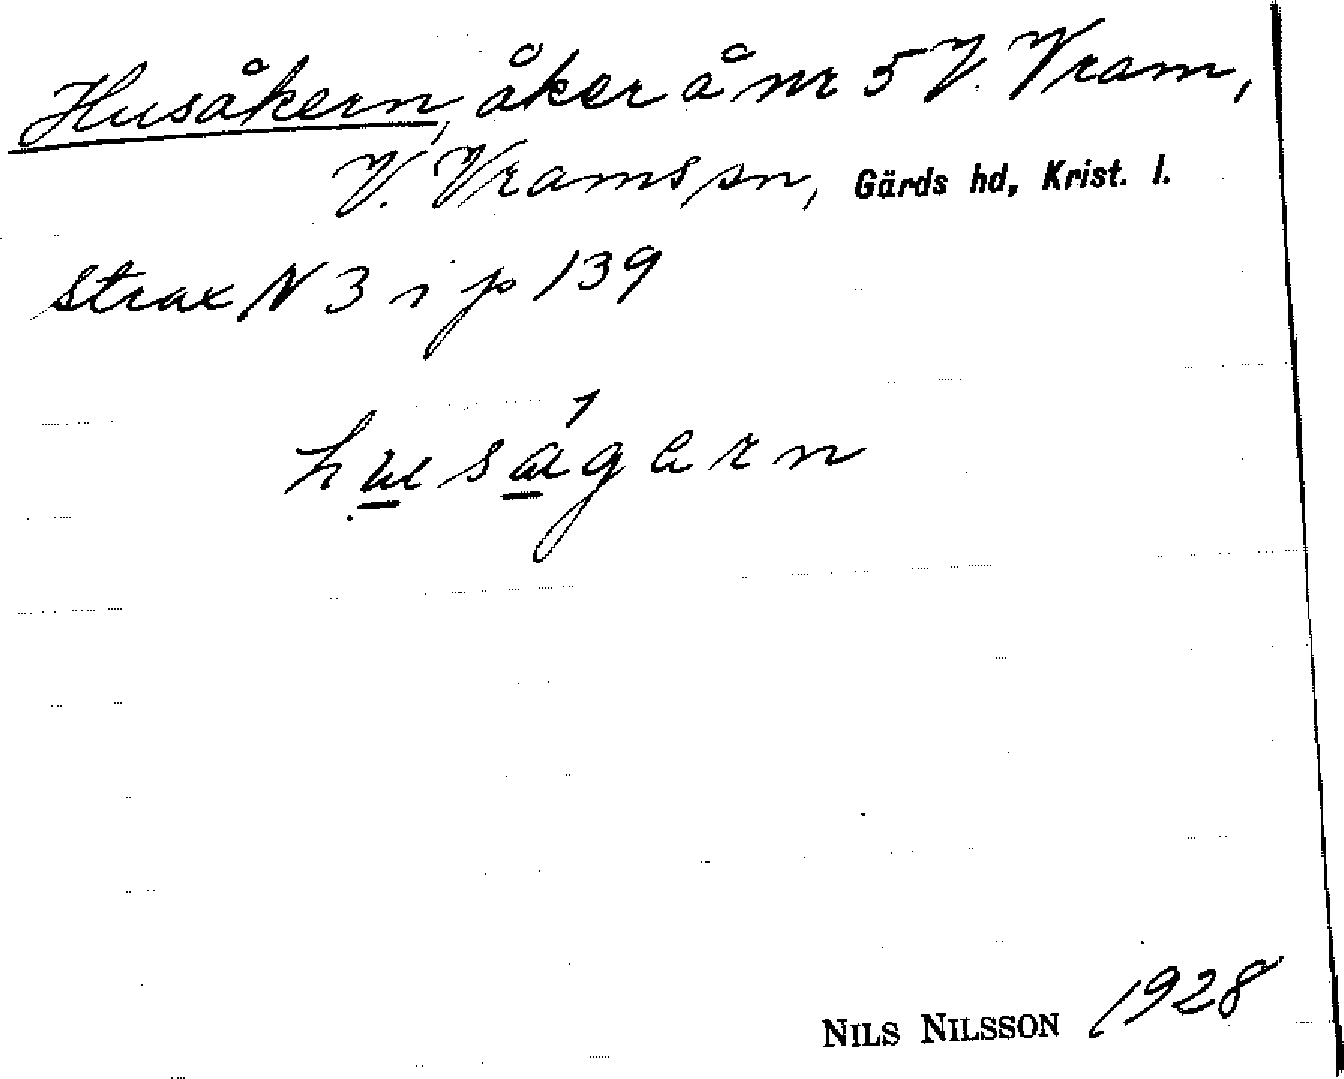 Husåkern, åker å nr 5 V. Vram,
V. Vrams sn, Gärds hd, Krist. l.
strax N 3 i p 139
NILS NILSSON 1928